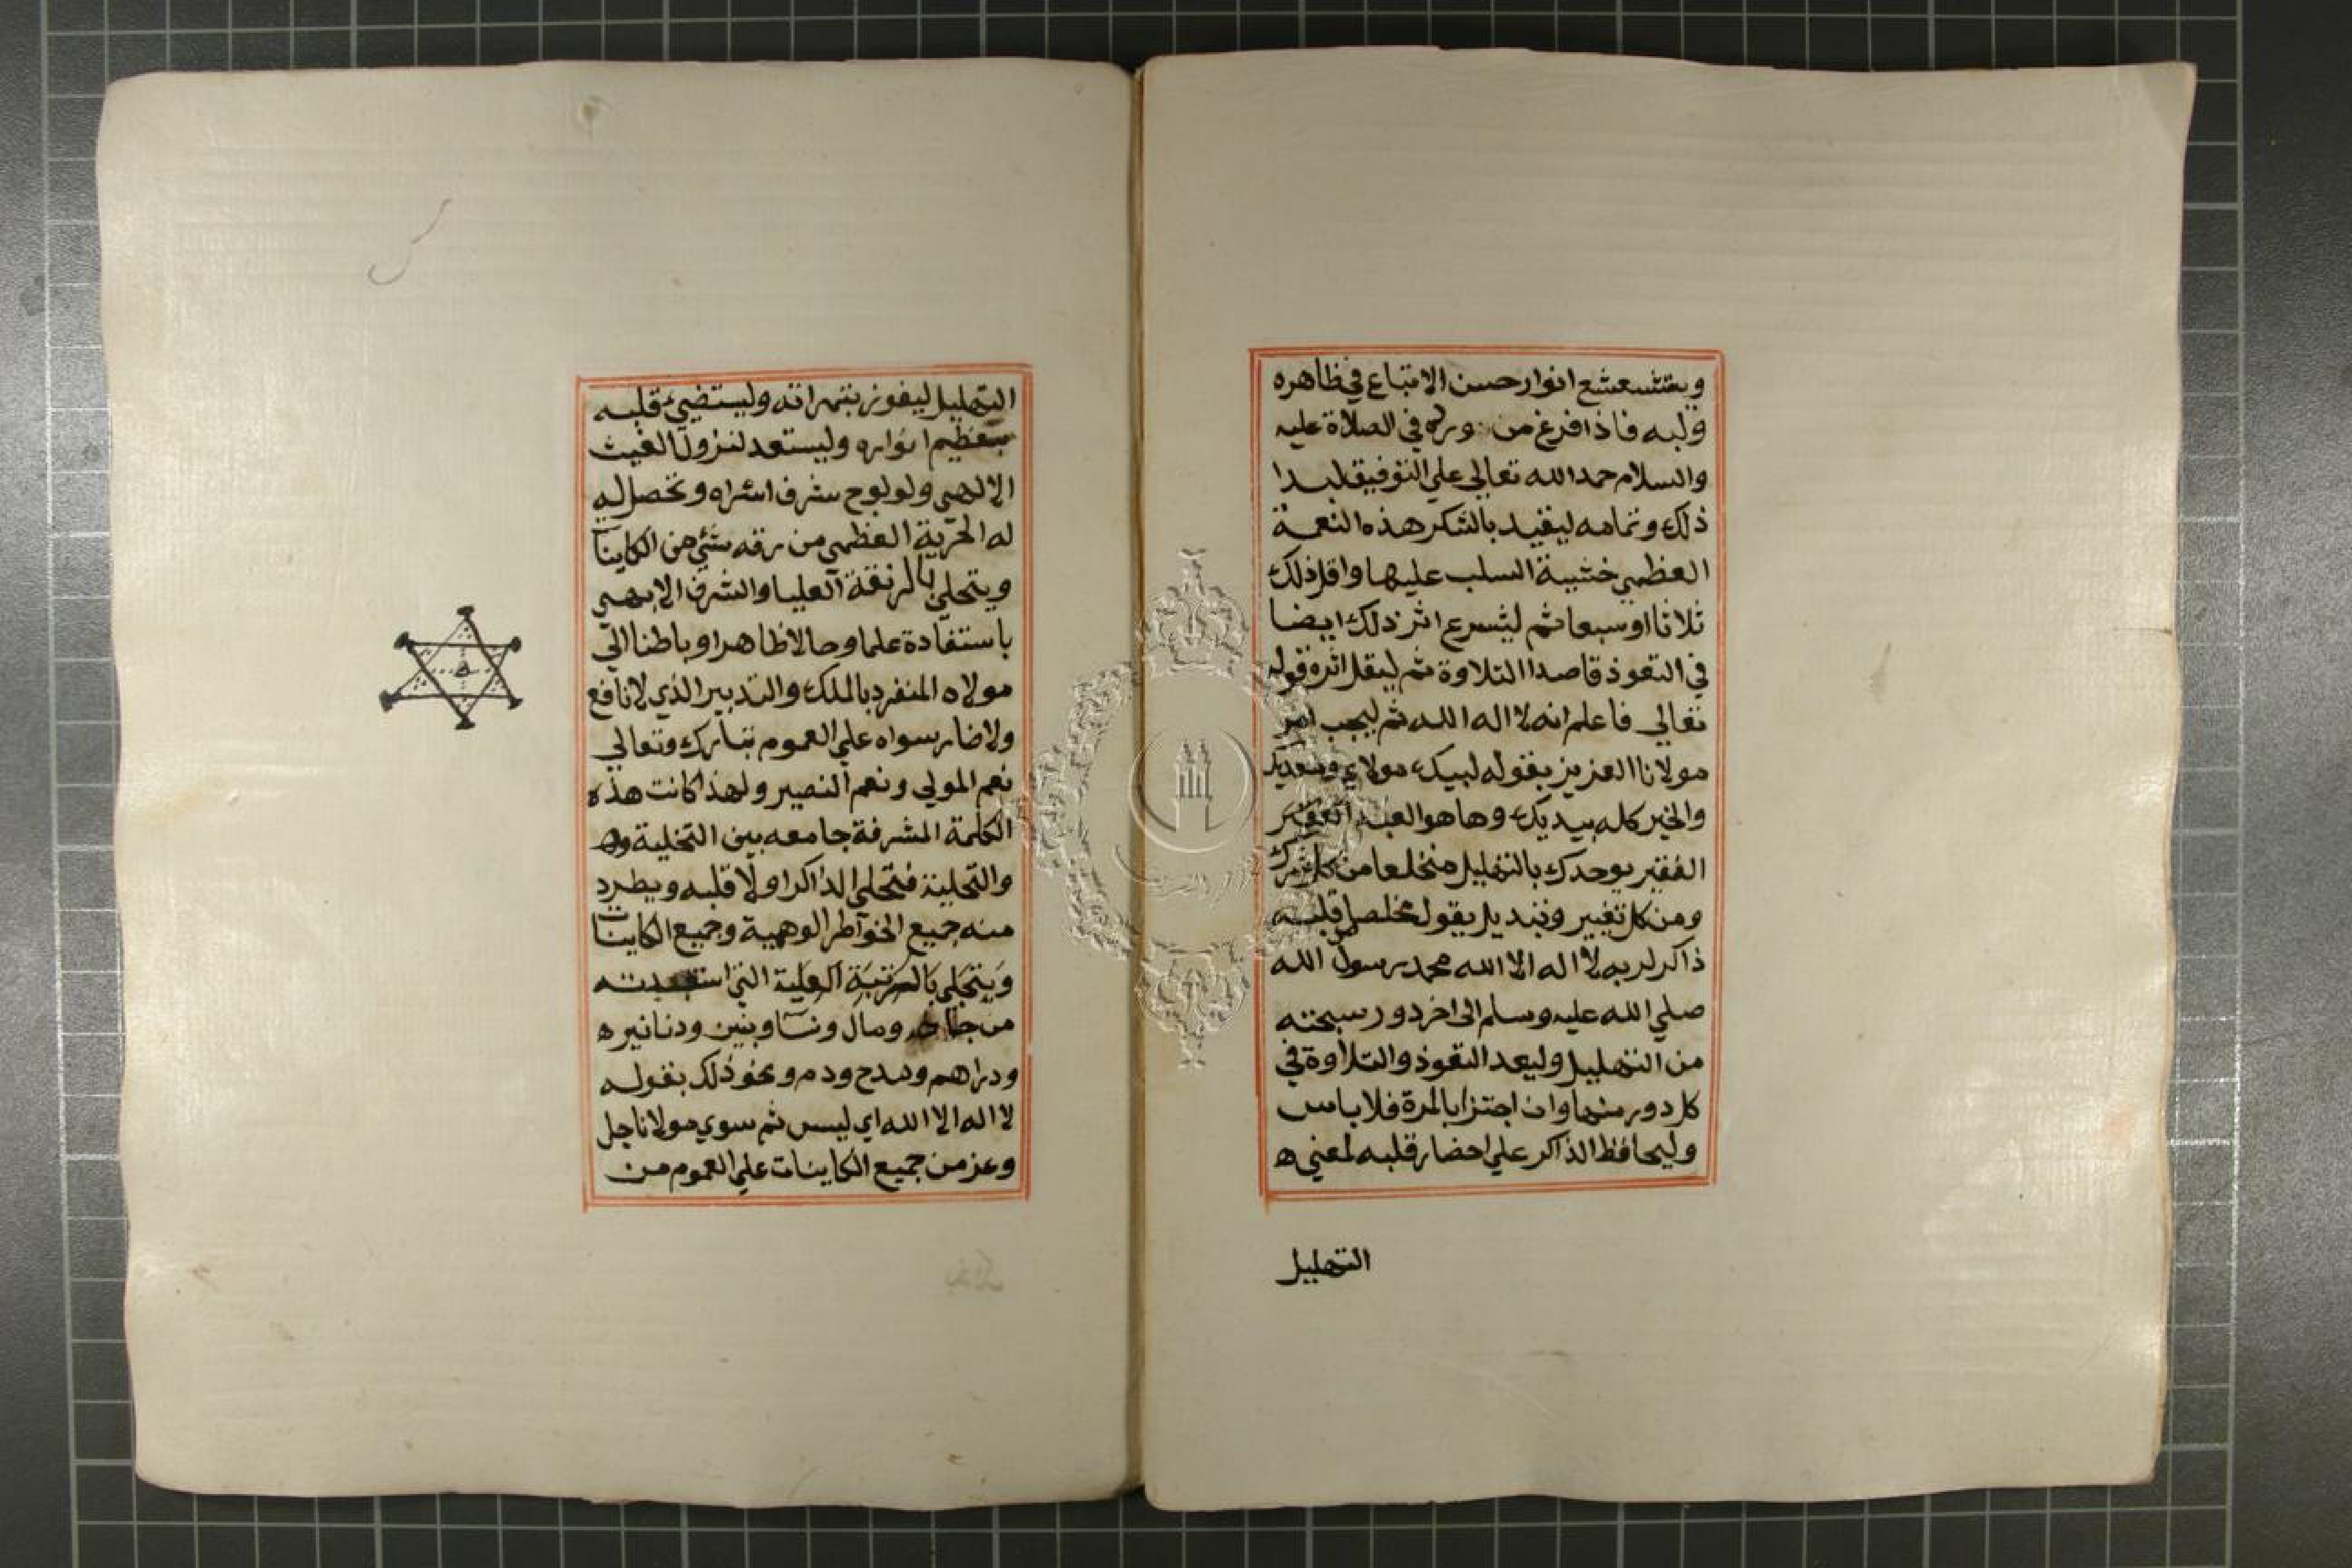 ويتشعشع انوار حسن الاتباع في ظاهره
ولبه فاذا فرغ من ورده في الصلاة عليه
والسلام حمد الله تعالي علي التوفيق لبدا
ذلك وتمامه ليقيد بالشكر هذه النعمة
العظمي خشية السلب عليها واقل ذلك
ثلاثا او سبعا ثم ليشرع اثر ذلك ايضا
في التعوذ قاصدا التلاوة ثم ليقل اثره قوله
تعالي فاعلم انه لا اله الا الله ثم ليجب امر
مولانا العزيز بقوله لبيك مولاي وسعديك
والخير كله بيديك وها هو العبد
الفقير يوحدك بالتهليل منخلعا من كل شرك
ومن كل تغيير وتبديل يقول مخلصا من قلبه
ذاكر لربه لا اله الا الله محمد رسول الله
صلي الله عليه وسلم الى اخر دور سبحته
من التهليل وليعد التعوذ والتلاوة في
كل دور منها وان اجتزا بالمرة فلا باس
وليحافظ الذاكر علي احضار قلبه لمعني ه
التهليل
التهليل ليفوز بثمراته وليستضيء قلبه
بعظيم انواره وليستعد لنزول الغيث
الالهي ولولوح شرف اسراه وتحصل له
له الحرية العظمي من رقه شئ من الكاينات
ويتحلي بالرتقة العليا والشرف الابهي
باستفادة علما وحالا ظاهرا وباطنا الي
مولاه المنفرد بالملك والتدبير الذي لا نافع
ولا ضار سواه علي العموم تبارك وتعالي
نعم المولي ونعم النصير ولهذا كانت هذه
الكلمة المشرفة جامعه بين التخلية وه
والتحلية فتحلي الذاكر اولا قلبه ويطرد
منه جميع الخواطر الوهمية وجميع الكاينات
ويتجلي بالمرتبة العلية التي استعبدته
من جاه ومال ونسآ وبنين ودنانير ه
ودراهم ومدح ودم ونحو ذلك بقوله
لا اله الا الله اي ليس ثم سوي مولانا جل
وعز من جميع الكاينات علي العموم من